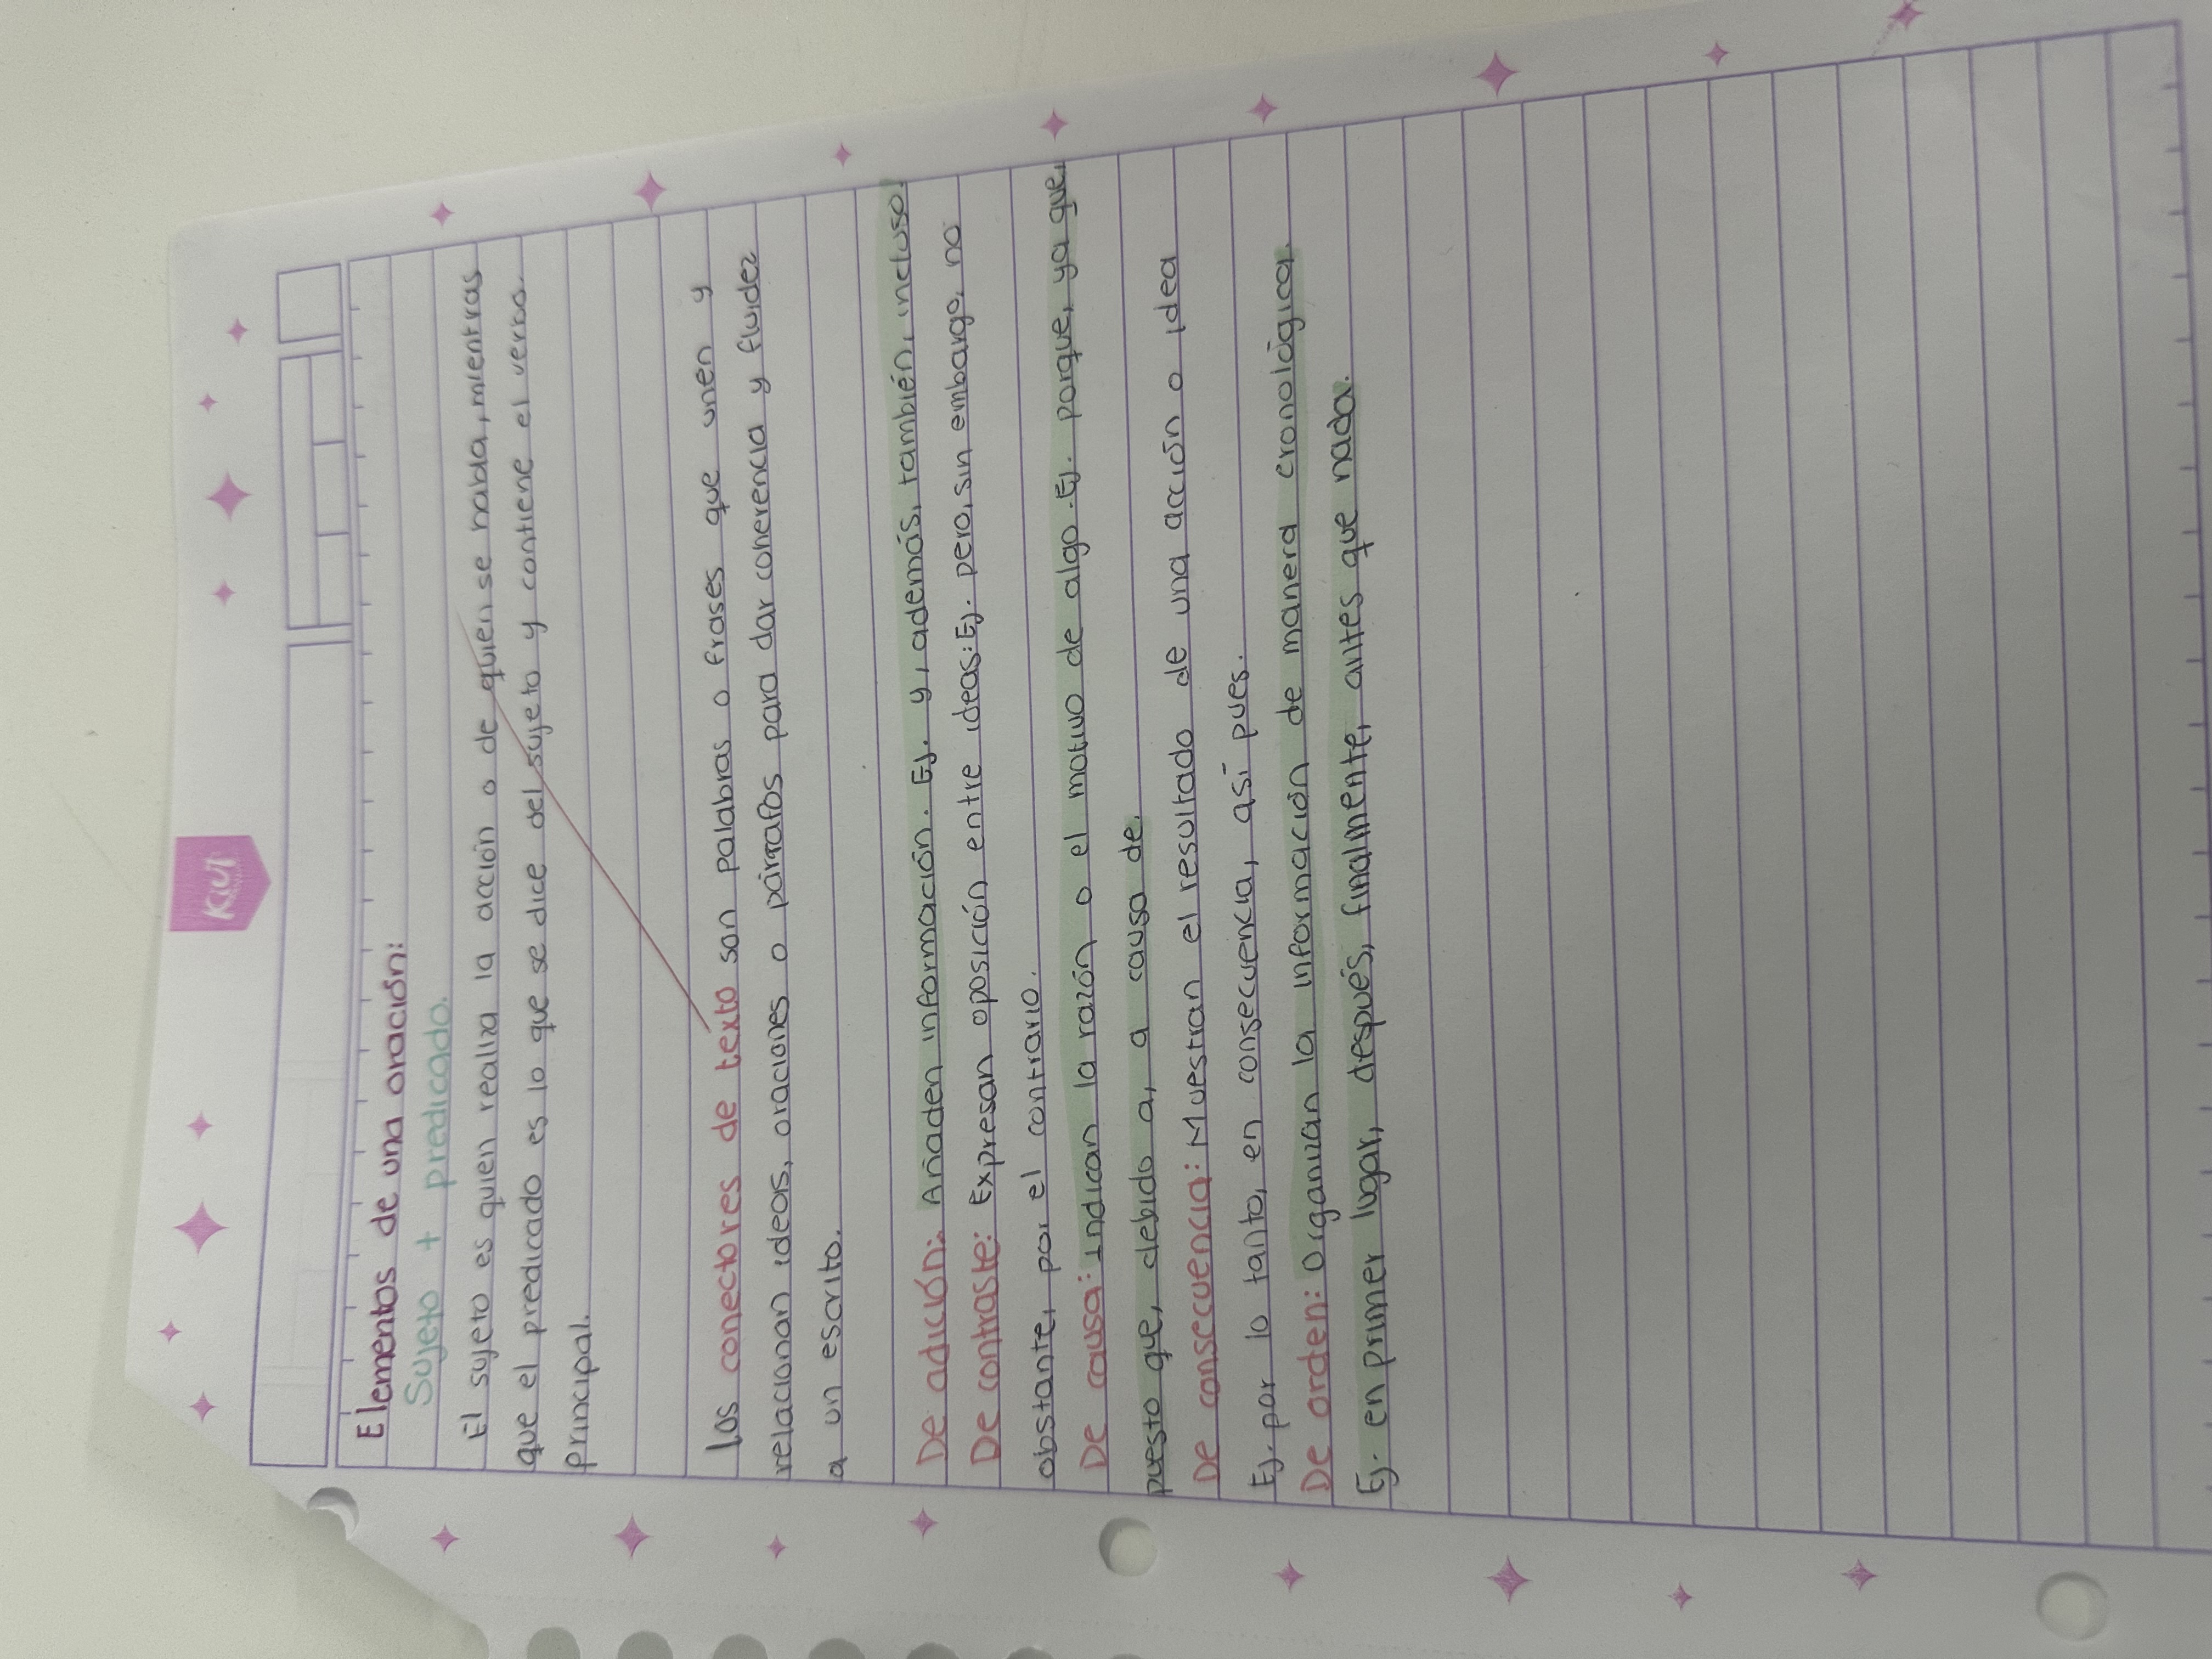 Kiut
Elementos de una oración:
Sujeto + predicado.
El sujeto es quien realiza la acción o de quien se habla, mientras
que el predicado es lo que se dice del sujeto y contiene el verbo
principal.
Los conectores de texto son palabras o frases que unen y
relacionan ideas, oraciones o párrafos para dar coherencia y fluidez
a un escrito.
De adición: Añaden información. Ej. y, además, también, incluso.
De contraste: Expresan oposición entre ideas: Ej. pero, sin embargo, no
obstante, por el contrario.
De causa: Indican la razón o el motivo de algo. Ej. porque, ya que,
puesto que, debido a, a causa de.
De consecuencia: Muestran el resultado de una acción o idea
Ej. por lo tanto, en consecuencia, así pues.
De orden: Organizan la información de manera cronológica.
Ej. en primer lugar, después, finalmente, antes que nada.